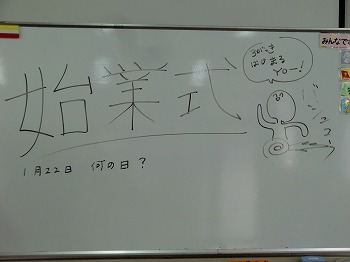 始業式
3がっき
はじまる
YO-!
1月22日 何の日?
みんなで